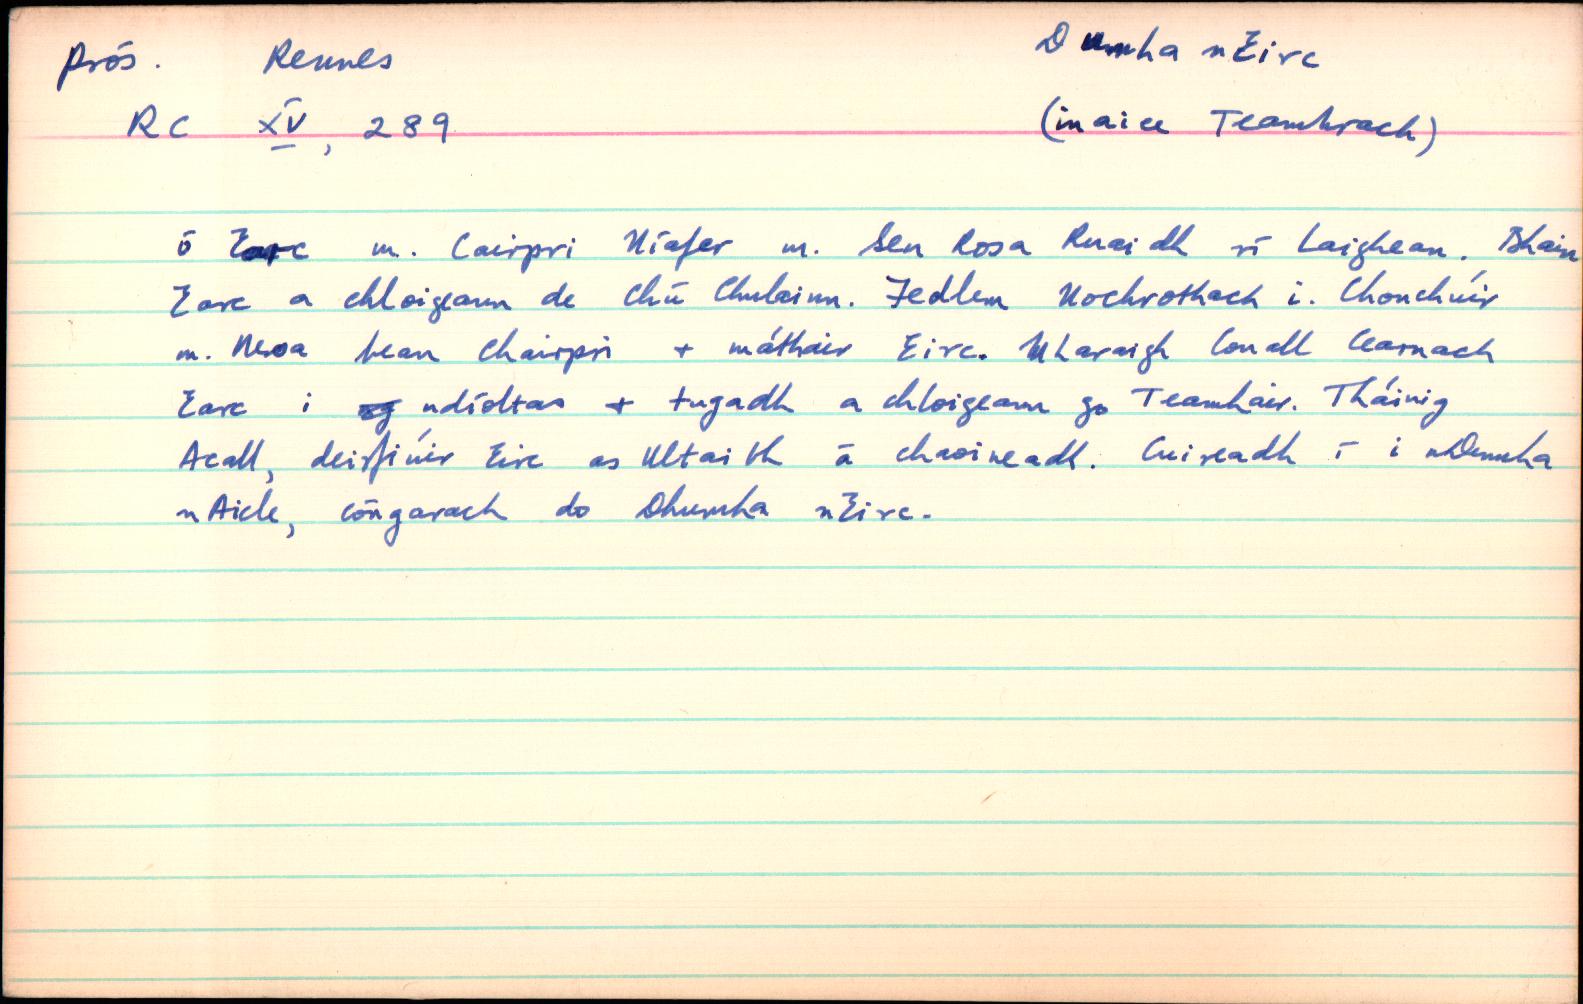 Prós. Rennes Dumha nEirc
RC XV, 289 (in aice Teamhrach)
ó Earc m. Cairpri Níafer m. Sen Rosa Ruaidh rí Laighean. Bhain
Earc a chloigeann de Chú Chulainn. Fedlem Nochrothach i. Chonchúir
m. Nesa bean Chairpri + máthair Eirc. Mharaigh Conall Cearnach
Earc i ndíoltas + tugadh a chloigeann go Teamhair. Tháinig
Acall, deirfiúir Eirc as Ultaibh á chaoineadh. Cuireadh í i nDumha
nAicle, cóngarach do Dhumha nEirc.